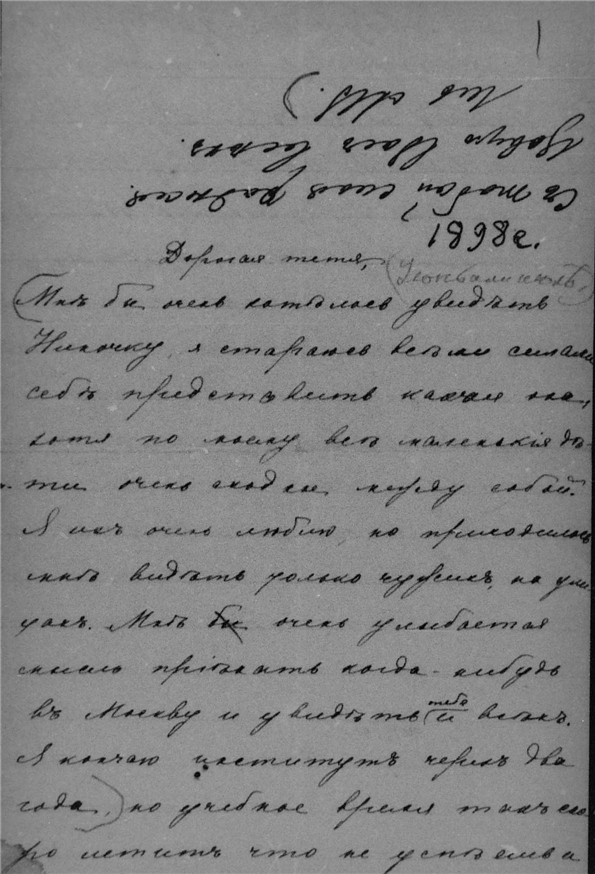 съ тобой
Цѣлую Васъ всѣхъ.
1898г.
Дорогая тетя,
(Мнѣ бы очень хотѣлось увидѣть
Ниночку, я стараюсь всѣми силами
себѣ представить какая она,
хотя по моему всѣ маленькія дѣ-
ти очень сходны между собой.
Я ихъ очень люблю, но приходилось
мнѣ видѣть только чужихъ, на ули-
цахъ. Мнѣ бы очень улыбается
мысль пріѣхать когда-нибудь
въ Москву и увидѣть тебя и всѣхъ.
Я кончаю институтъ черезъ два
года,) но учебное время такъ ско-
ро летитъ что не успѣешь